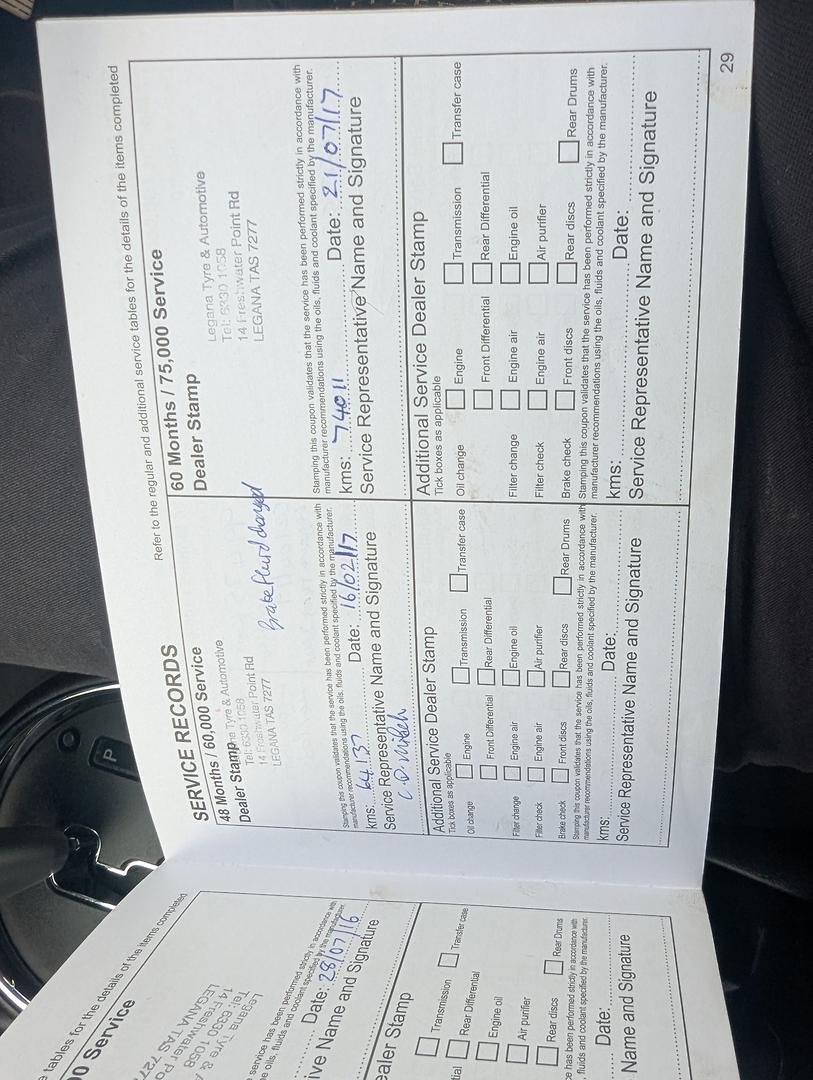 Refer to the regular and additional service tables for the details of the items completed
SERVICE RECORDS
48 Months / 60,000 Service
Dealer Stamp
Tyre & Automotive
Tel: 6330 1058
14 Freshwater Point Rd
LEGANA TAS 7277
Brake fluid changed
Stamping this coupon validates that the service has been performed strictly in accordance with
manufacturer recommendations using the oils, fluids and coolant specified by the manufacturer.
kms: 64137 Date: 16/02/17
Service Representative Name and Signature
Additional Service Dealer Stamp
Tick boxes as applicable
Oil change Engine Transmission Transfer case
Front Differential Rear Differential
Filter change Engine air Engine oil
Filter check Engine air Air purifier
Brake check Front discs Rear discs Rear Drums
Stamping this coupon validates that the service has been performed strictly in accordance with
manufacturer recommendations using the oils, fluids and coolant specified by the manufacturer.
kms: Date:
Service Representative Name and Signature
60 Months / 75,000 Service
Dealer Stamp
Legana Tyre & Automotive
Tel: 6330 1058
14 Freshwater Point Rd
LEGANA TAS 7277
Stamping this coupon validates that the service has been performed strictly in accordance with
manufacturer recommendations using the oils, fluids and coolant specified by the manufacturer.
kms: 74011 Date: 21/07/17
Service Representative Name and Signature
Additional Service Dealer Stamp
Tick boxes as applicable
Oil change Engine Transmission Transfer case
Front Differential Rear Differential
Filter change Engine air Engine oil
Filter check Engine air Air purifier
Brake check Front discs Rear discs Rear Drums
Stamping this coupon validates that the service has been performed strictly in accordance with
manufacturer recommendations using the oils, fluids and coolant specified by the manufacturer.
kms: Date:
Service Representative Name and Signature
29
tables for the details of the items completed
00 Service
Legana Tyre &
Tel: 6330 1058
14 Freshwater
LEGANA TAS
service has been performed strictly in accordance with
oils, fluids and coolant specified by the manufacturer.
Date: 28/07/16
Name and Signature
Stamp
Transmission Transfer case
Rear Differential
Engine oil
Air purifier
Rear discs Rear Drums
has been performed strictly in accordance with
fluids and coolant specified by the manufacturer.
Date:
Name and Signature
P